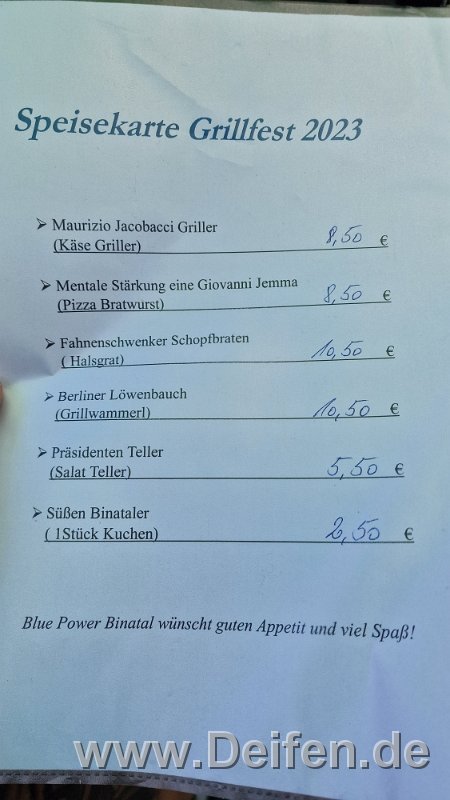 Speisekarte Grillfest 2023
➢ Maurizio Jacobacci Griller
(Käse Griller) 8,50 €
➢ Mentale Stärkung eine Giovanni Jemma
(Pizza Bratwurst) 8,50 €
➢ Fahnenschwenker Schopfbraten
( Halsgrat) 10,50 €
➢ Berliner Löwenbauch
(Grillwammerl) 10,50 €
➢ Präsidenten Teller
(Salat Teller) 5,50 €
➢ Süßen Binataler
( 1Stück Kuchen) 2,50 €
Blue Power Binatal wünscht guten Appetit und viel Spaß!
www.Deifen.de